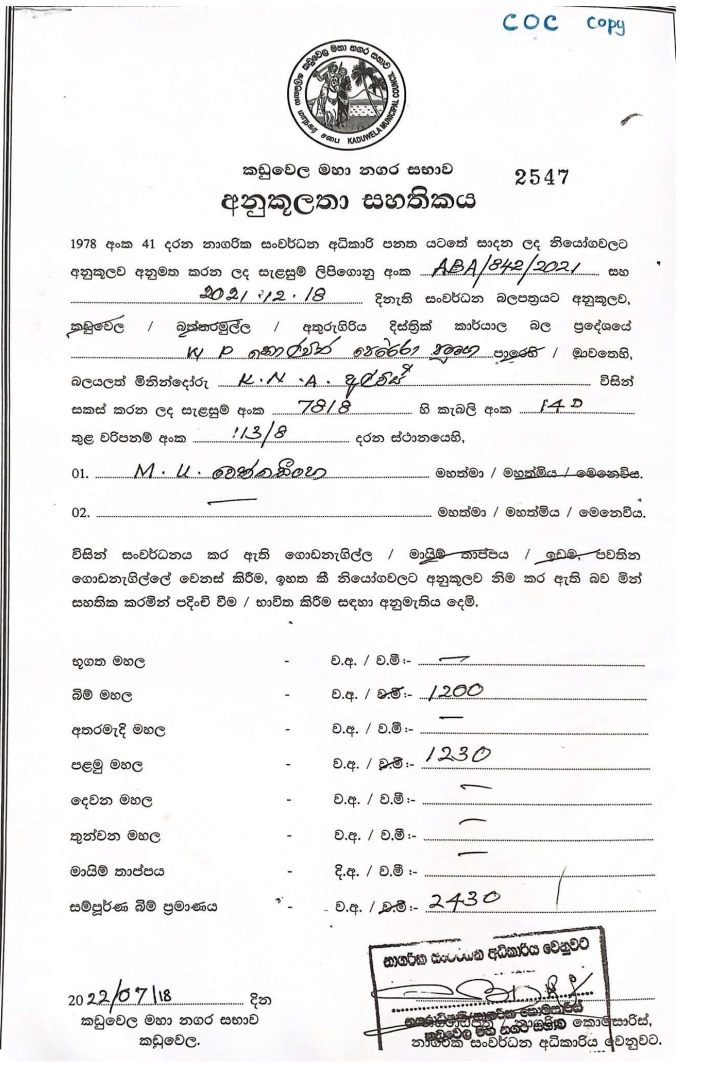 COC copy
කඩුවෙල මහා නගර සභාව
மாநகர சபை KADUWELA MUNICIPAL COUNCIL
කඩුවෙල මහා නගර සභාව 2547
අනුකූලතා සහතිකය
1978 අංක 41 දරන නාගරික සංවර්ධන අධිකාරි පනත යටතේ සාදන ලද නියෝගවලට
අනුකූලව අනුමත කරන ලද සැළසුම් ලිපිගොනු අංක ABA/842/2021 සහ
2021.12.18 දිනැති සංවර්ධන බලපත්‍රයට අනුකූලව,
කඩුවෙල / බත්තරමුල්ල / අතුරුගිරිය දිස්ත්‍රික් කාර්යාල බල ප්‍රදේශයේ
W P පෙරේරා පාරෙහි / මාවතෙහි,
බලයලත් මිනින්දෝරු K.N.A. අල්විස් විසින්
සකස් කරන ලද සැළසුම් අංක 7818 හි කැබලි අංක 14D
තුළ වරිපනම් අංක 113/8 දරන ස්ථානයෙහි,
01. M.U. මහත්මා / මහත්මිය / මෙනෙවිය.
02. — මහත්මා / මහත්මිය / මෙනෙවිය.
විසින් සංවර්ධනය කර ඇති ගොඩනැගිල්ල / මායිම් තාප්පය / ඉඩම, පවතින
ගොඩනැගිල්ලේ වෙනස් කිරීම, ඉහත කී නියෝගවලට අනුකූලව නිම කර ඇති බව මින්
සහතික කරමින් පදිංචි වීම / භාවිත කිරීම සඳහා අනුමැතිය දෙමි.
භූගත මහල - ව.අ. / ව.මී :- —
බිම් මහල - ව.අ. / ව.මී :- 1200
අතරමැදි මහල - ව.අ. / ව.මී :- —
පළමු මහල - ව.අ. / ව.මී :- 1230
දෙවන මහල - ව.අ. / ව.මී :- —
තුන්වන මහල - ව.අ. / ව.මී :- —
මායිම් තාප්පය - දි.අ. / ව.මී :- —
සම්පූර්ණ බිම් ප්‍රමාණය - ව.අ. / ව.මී :- 2430
නාගරික සංවර්ධන අධිකාරිය වෙනුවට
2022/07/18 දින
කඩුවෙල මහා නගර සභාව කොමසාරිස්,
කඩුවෙල. නාගරික සංවර්ධන අධිකාරිය වෙනුවට.